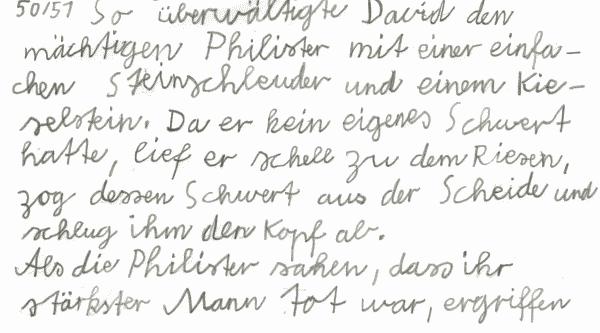 50/51 So überwältigte David den
mächtigen Philister mit einer einfa-
chen Steinschleuder und einem Kie-
selstein. Da er kein eigenes Schwert
hatte, lief er schell zu dem Riesen,
zog dessen Schwert aus der Scheide und
schlug ihm den Kopf ab.
Als die Philister sahen, dass ihr
stärkster Mann tot war, ergriffen